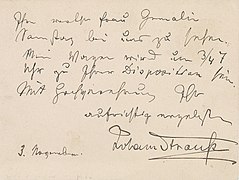 Ihre werthe Frau Gemalin
Samstag bei uns zu sehen.
Mein Wagen wird um 3/4 7
Uhr zu Ihrer Disposition sein
Mit Hochverehrung Ihr
aufrichtig ergebener
Johann Strauß
3. November.